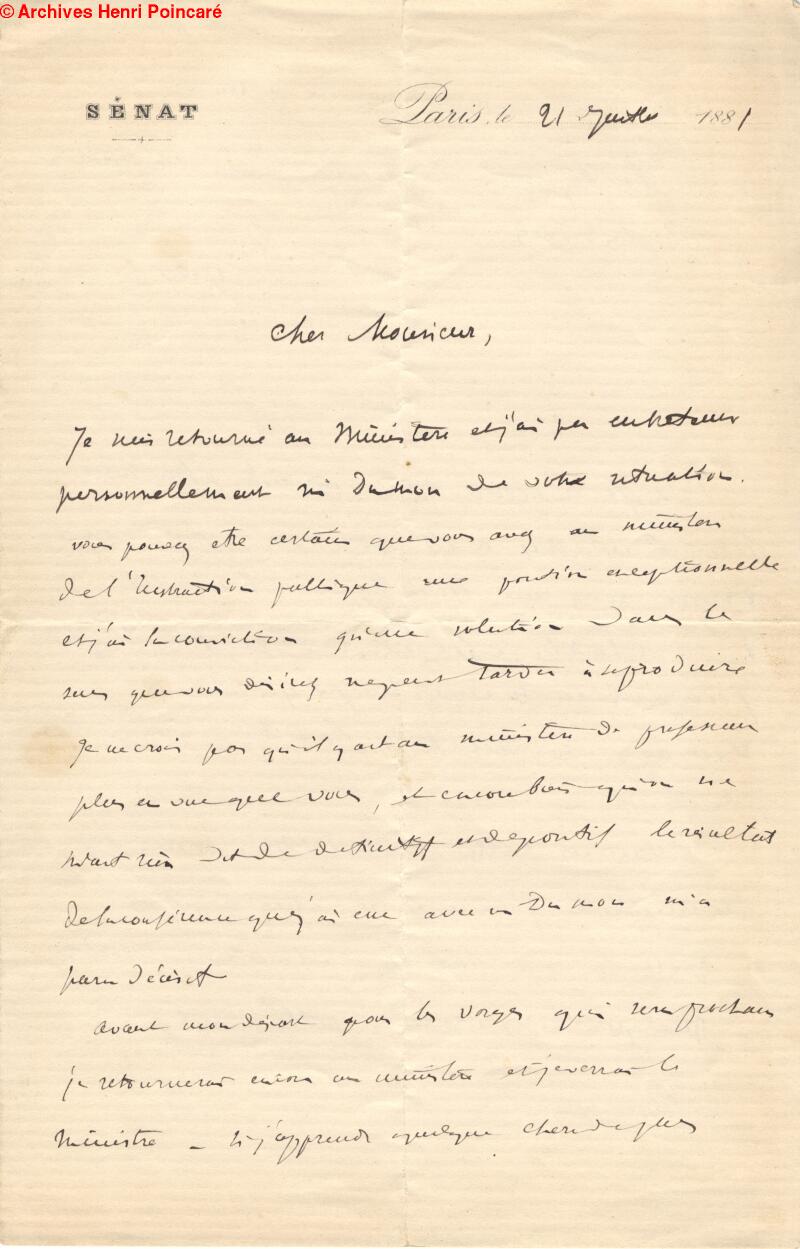 © Archives Henri Poincaré
SÉNAT
Paris, le 21 Juillet 1881
Cher Monsieur,
Je suis retourné au Ministère et j'ai pu entretenir
personnellement Mr Dumon de votre situation.
Vous pouvez être certain que vous avez au ministère
de l'Instruction publique une position exceptionnelle
et j'ai la conviction qu'une solution dans le
sens que vous désirez ne peut tarder à se produire
Je ne crois pas qu'il y ait au ministère de professeur
plus en vue que vous, et encore bien qu'on ne
m'ait rien dit de définitif et de positif le résultat
de la conférence que j'ai eue avec M Dumon m'a
paru décisif
avant mon départ pour les Vosges qui sera prochain
je retournerai encore au ministère et je verrai le
Ministre – si j'apprends quelque chose de plus